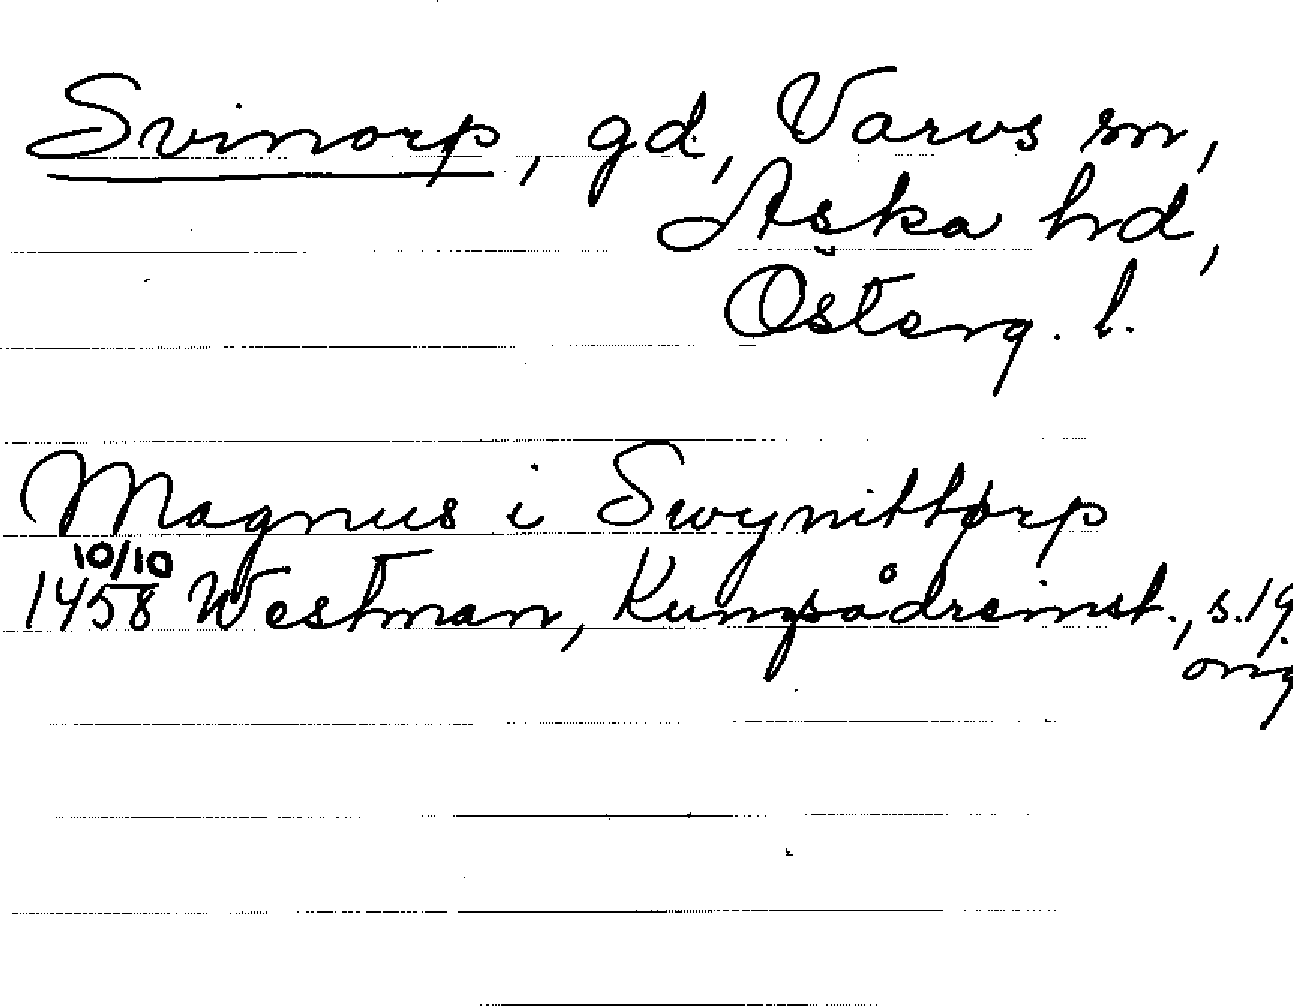 Svinorp, gd, Varvs sn,
Aska hd,
Österg. l.
Magnus i Swynittørp
10/10
1458 Westman, Kungsådreinst., s. 19.
orig